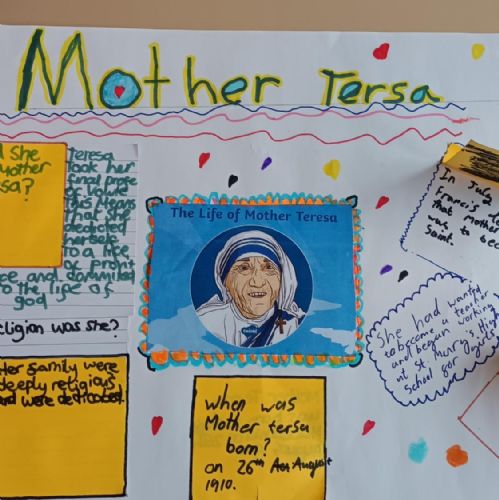 Mother Tersa
d she
Mother
sa?
Teresa
took her
final
of
This Means
that she
dedicated
herself
to a life
of
ce and
to the life of
god
eligion was she?
Her family were
deeply religious
and were dedicated
The Life of Mother Teresa
when was
Mother tersa
born?
on 26th August
1910.
In July
Francis
that mother
was to be
Saint.
She had wanted
to become a teacher
and began working
at St Mary's High
School for girls